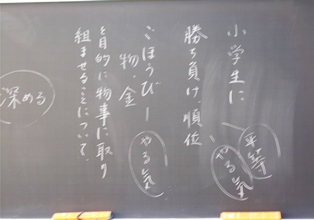 小学生に
勝ち負け、順位
平等
やる気
ごほうびー
物、金
やる気
を目的に物事に取り
組ませることについて。
深める